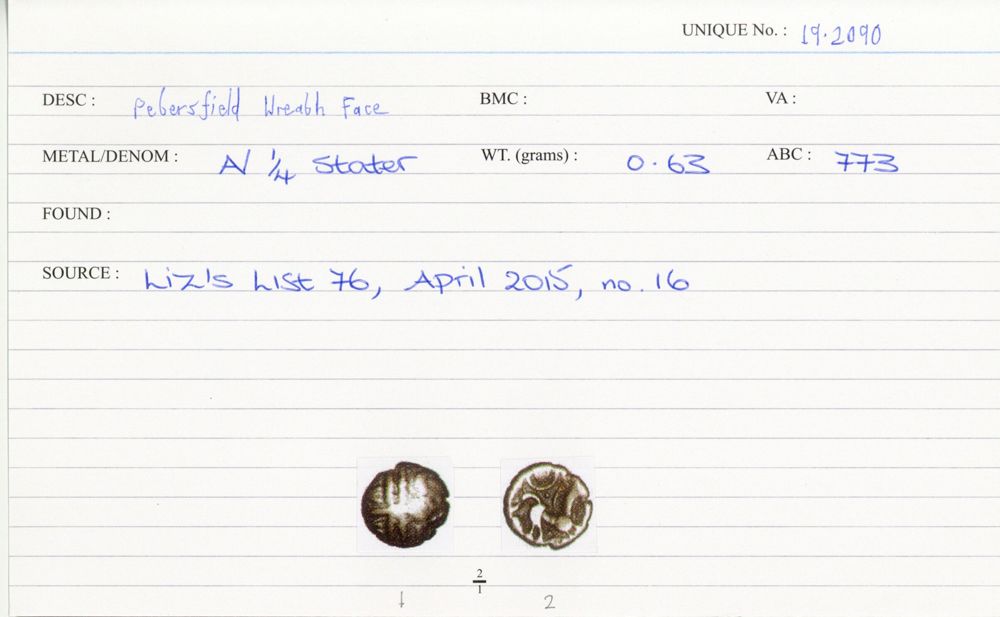 UNIQUE No. : 19.2090
DESC : Petersfield Wreath Face BMC : VA :
METAL/DENOM : A/ 1/4 Stater WT. (grams) : 0.63 ABC : 773
FOUND :
SOURCE : Liz's List 76, April 2015, no. 16
2/1
1 2